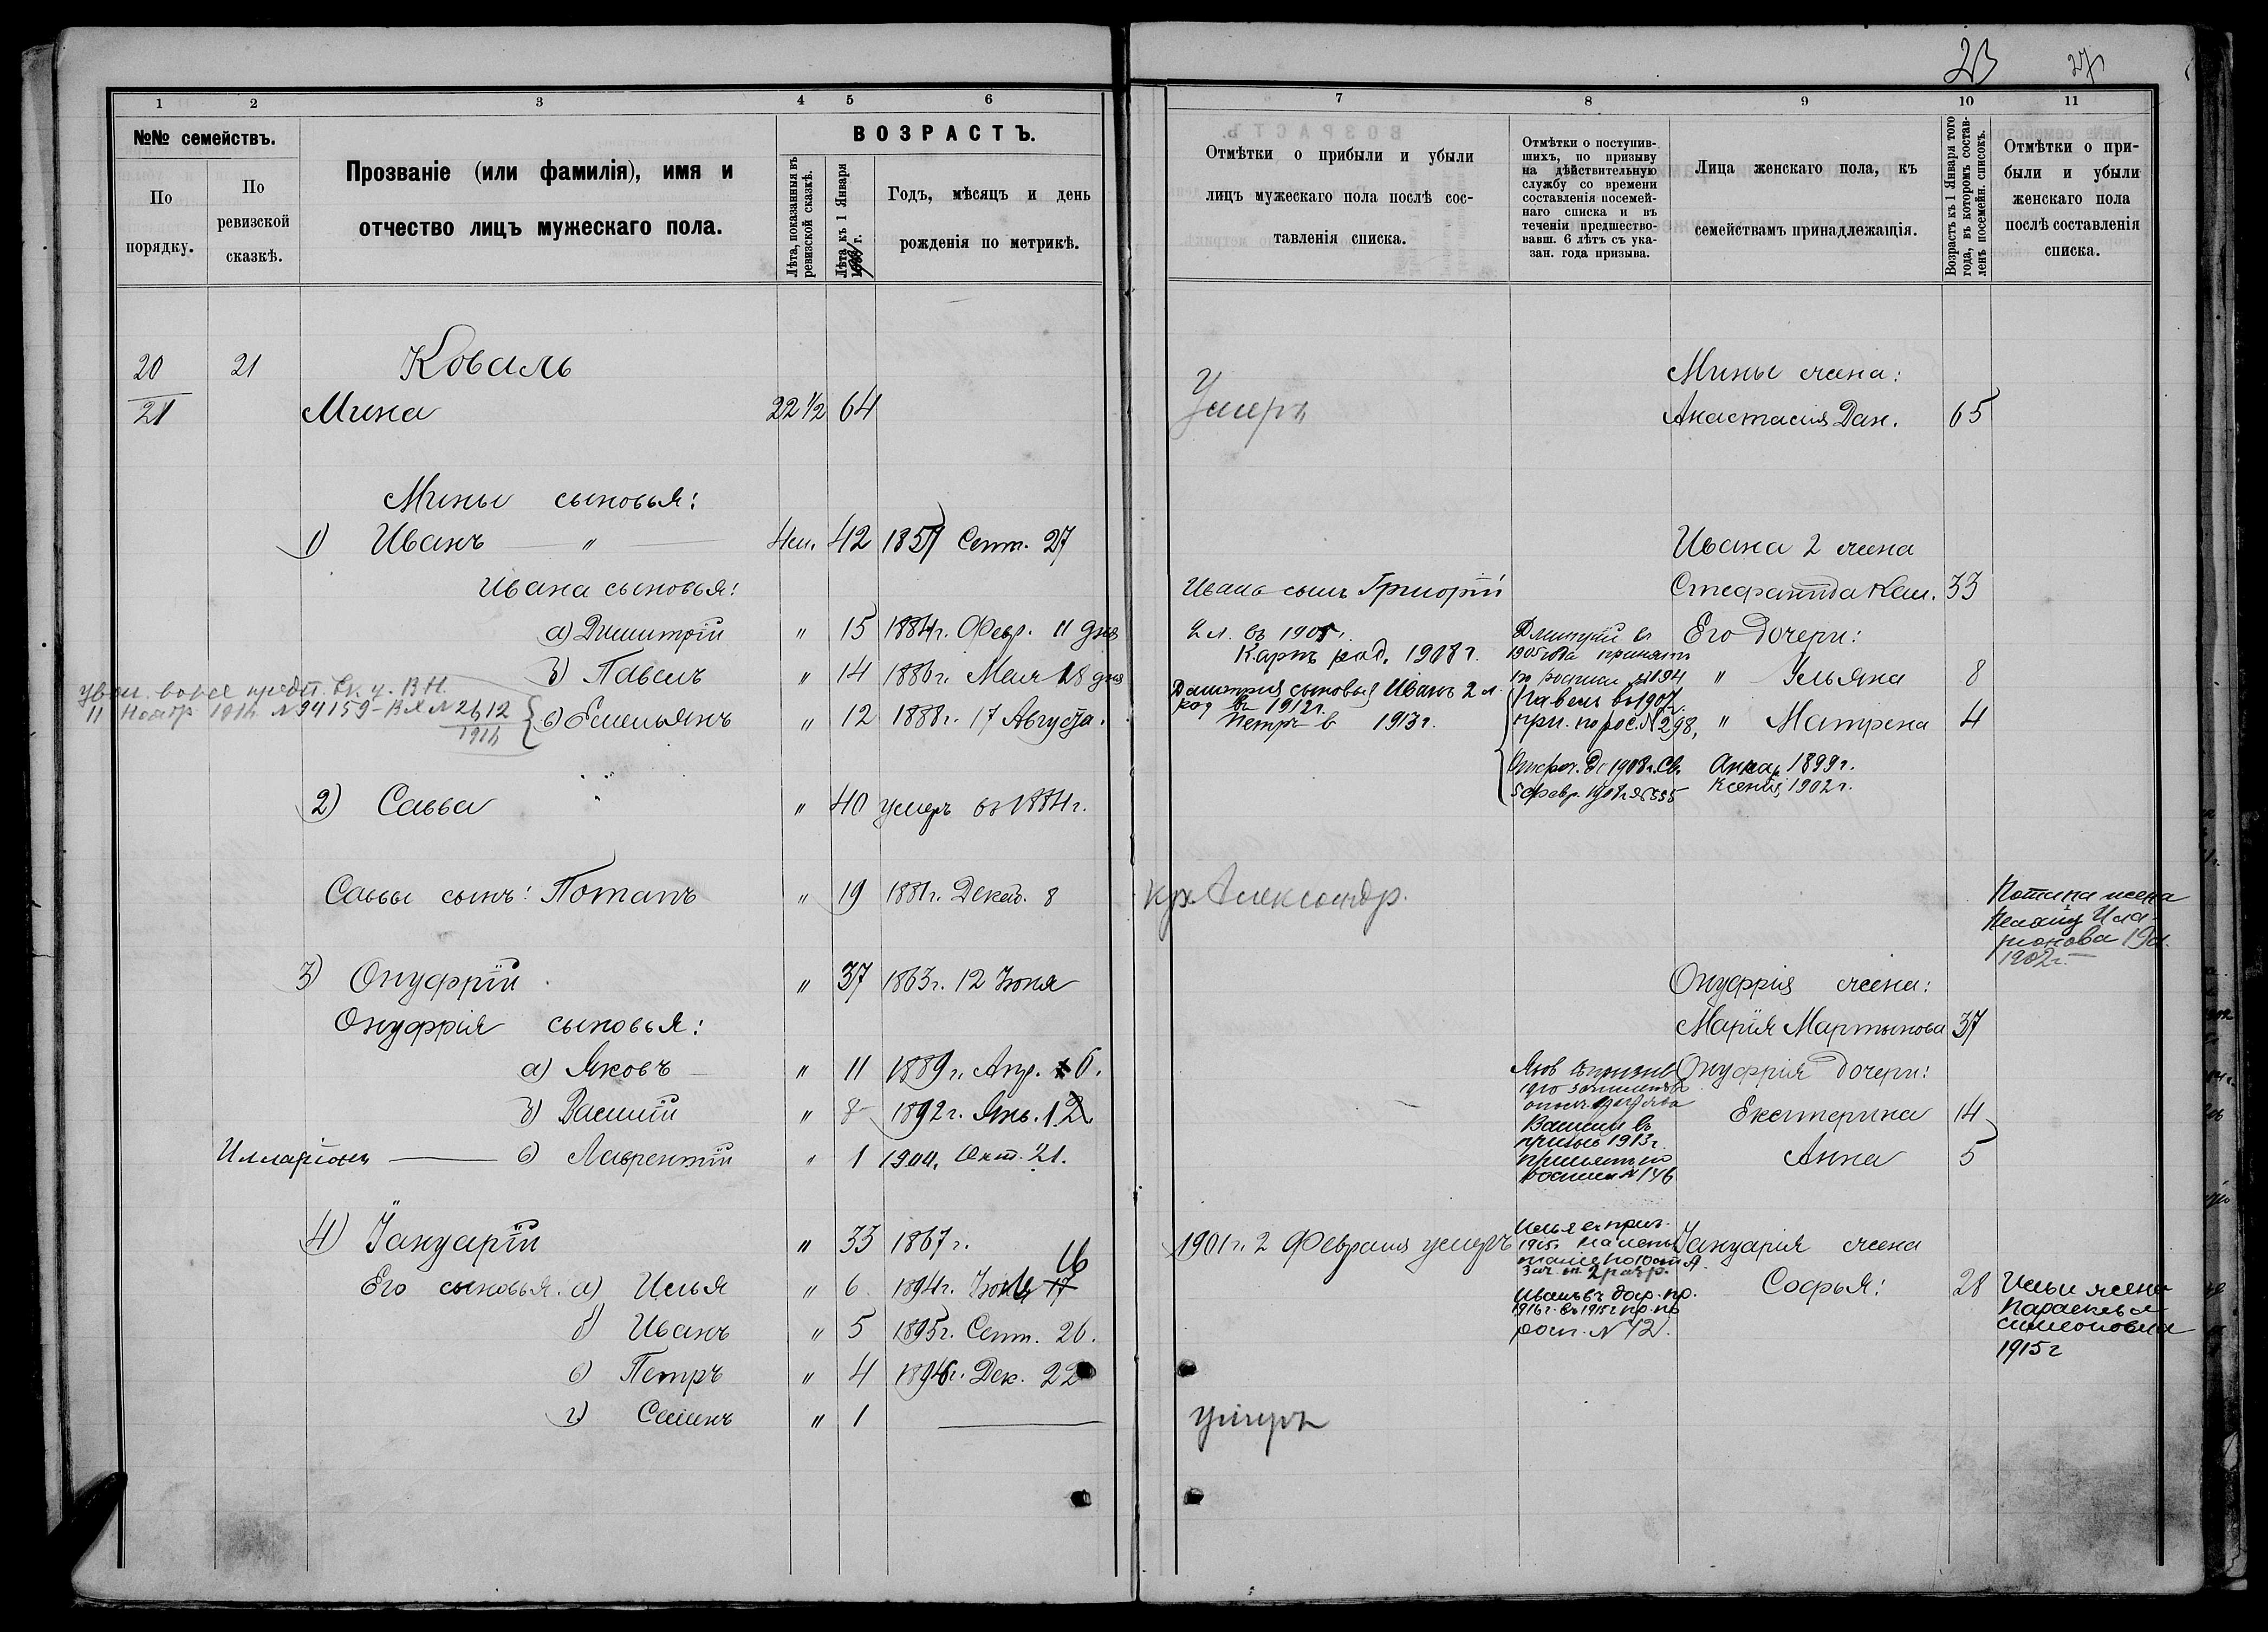 23 27
1 2 3 4 5 6
№№ семействъ.
По порядку.
По ревизской сказкѣ.
Прозваніе (или фамилія), имя и
отчество лицъ мужескаго пола.
ВОЗРАСТЪ.
Лѣта, показанныя въ ревизской сказкѣ.
Лѣта къ 1 Января г.
Годъ, мѣсяцъ и день
рожденія по метрикѣ.
20 21 Коваль
21 Мина 22 1/2 64
Мины сыновья:
1) Иванъ " 4 м. 42 1857 Сент. 27
Ивана сыновья:
а) Димитрій " 15 1884 г. Февр. 11 дня
б) Павелъ " 14 1886 г. Мая 18 дня
11 Ноябр 1914 № 94159 - В Я № 2412
1914
в) Емельянъ " 12 1888 г. 17 Августа.
2) Савва " 40 умеръ въ 1884 г.
Саввы сынъ: Потапъ " 19 1881 г. Декаб. 8
3) Онуфрій " 37 1863 г. 12 Іюня
Онуфрія сыновья:
а) Яковъ " 11 1889 г. Апр. 6.
б) Василій " 8 1892 г. Янв. 12
Илларіонъ в) Лаврентій " 1 1900. Окт. 21.
4) Іануарій " 33 1867 г.
Его сыновья: а) Илья " 6 1894 г. Іюля 17 16
б) Иванъ " 5 1895 г. Сент. 26.
в) Петръ " 4 1896 г. Дек. 22
г) Семенъ " 1
7 8 9 10 11
Отмѣтки о прибыли и убыли
лицъ мужескаго пола послѣ сос-
тавленія списка.
Отмѣтки о поступив-
шихъ, по призыву
на дѣйствительную
службу со времени
составленія посемей-
наго списка и въ
теченіи предшество-
вавш. 6 лѣтъ съ ука-
зан. года призыва.
Лица женскаго пола, къ
семействамъ принадлежащія.
Возрастъ къ 1 Января того
года, въ которомъ состав-
ленъ посемейн. списокъ.
Отмѣтки о при-
были и убыли
женскаго пола
послѣ составленія
списка.
Мины жена:
Умеръ Анастасія Дан. 65
Ивана 2 жена
Ивана сынъ Григорій Стефанида Кал. 33
Его дочери:
Карпъ род. 1908 г.
Дмитрій въ
1905 года принятъ
по росписи № 194
" Ульяна 8
Дмитрия сыновья Иванъ 2 л.
род въ 1912 г.
Петръ в 1913 г.
Павелъ въ 1907 г.
прин. по рос. № 298,
" Матрена 4
Отсроч. до 1908 г. Св.
5 февр. 1908 г № 555
Анна 1899 г.
Ксенія 1902 г.
Кр. Александр.
Потапа жена
Пелагия Ила-
рионова 19 л.
1902 г.
Онуфрія жена:
Марія Мартынова 37
Онуфрія дочери:
Екатерина 14
Василій въ
призыв 1913 г.
принятъ по
росписи № 146
Анна 5
1901 г. 2 Февраля умеръ
Илья въ приз.
1915 г.
Іануарія жена
Софья: 28
Иванъ въ доср. пр.
1916 г. въ 1915 г пр. по
росп. № 12.
Ильи жена
Параскева
Симеоновна
1915 г
умеръ